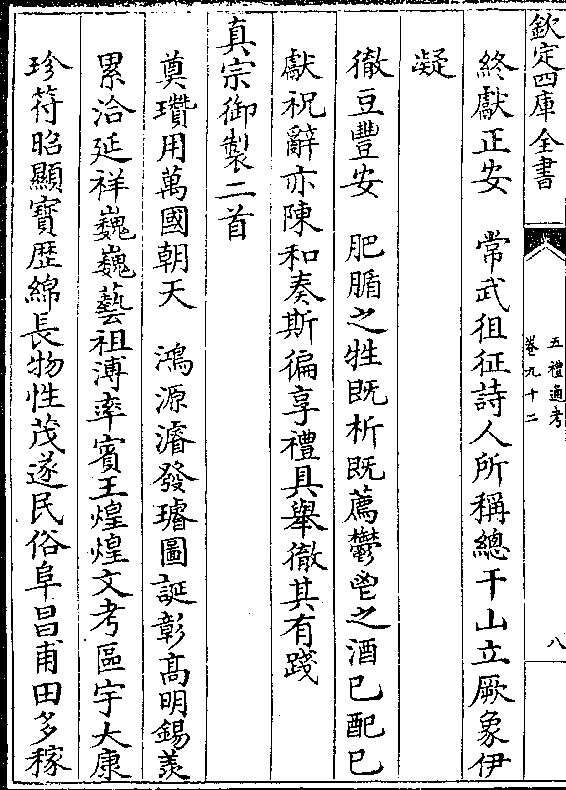 欽定四庫全書
五禮通考
卷九十二
八
終獻正安　常武徂征詩人所稱總干山立厥象伊
凝
徹豆豐安　肥腯之牲既析既薦鬱鬯之酒已配已
獻祝辭亦陳和奏斯徧享禮具舉徹其有踐
真宗御製二首
奠瓚用萬國朝天　鴻源濬發璿圖誕彰髙明錫羨
累洽延祥巍巍藝祖溥率賓王煌煌文考區宇大康
珍符昭顯寶歴綿長物性茂遂民俗阜昌甫田多稼